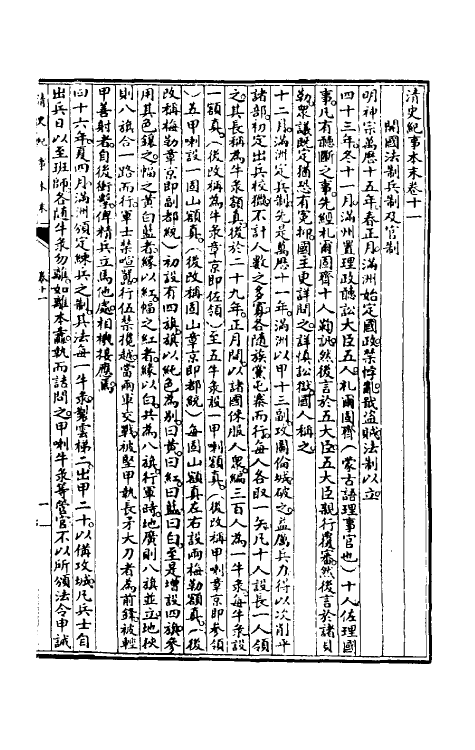 清史紀事本末卷十一
開國法制兵制及官制
明神宗萬曆十五年春正月滿洲始定國政禁悖亂戢盜賊法制以立
四十三年冬十一月滿洲置理政聽訟大臣五人札爾固齊（蒙古語理事官也）十人佐理國
事凡有聽斷之事先經札爾固齊十人勘訊然後言於五大臣五大臣覆審然後言於諸貝
勒眾議既定猶恐有冤抑國主更詳問之詳慎訟獄國人稱之
十二月滿洲定兵制先是萬曆十一年滿洲以甲十三副攻圖倫城破之益厲兵力得以次削平
諸部初定出兵校獵不計人數之多寡各隨族黨屯寨而行每人各取一矢凡十人設長一人領
之其長稱為牛彔額真後於二十九年正月間以諸國徠服人眾編三百人為一牛彔每牛彔設
一額真（後改稱為牛彔章京即佐領）至五牛彔設一甲喇額真（後改稱甲喇章京即參領
）五甲喇設一固山額真（後改稱固山章京即都統）每固山額真左右設兩梅勒額真（後
改稱梅勒章京即副都統）初設有四旗旗以純色為別曰黃曰紅曰藍曰白至是增設四旗參
用其色鑲之幅之黃白藍者緣以紅幅之紅者緣以白共為八旗行軍時地廣則八旗並立地狹
則八旗合一路而行軍士禁喧囂行伍禁攙越當兩軍交戰被堅甲執長矛大刀者為前鋒被輕
甲善射者自後衝擊俾精兵立馬他處相機接應焉
四十六年夏四月滿洲頒定練兵之制其法每一牛彔製雲梯二出甲二十以備攻城凡兵士自
出兵日以至班師各隨牛彔勿離如離本纛執而詰問之甲喇牛彔等管官不以所頒法令申誡
清史紀事本末
卷十一
一